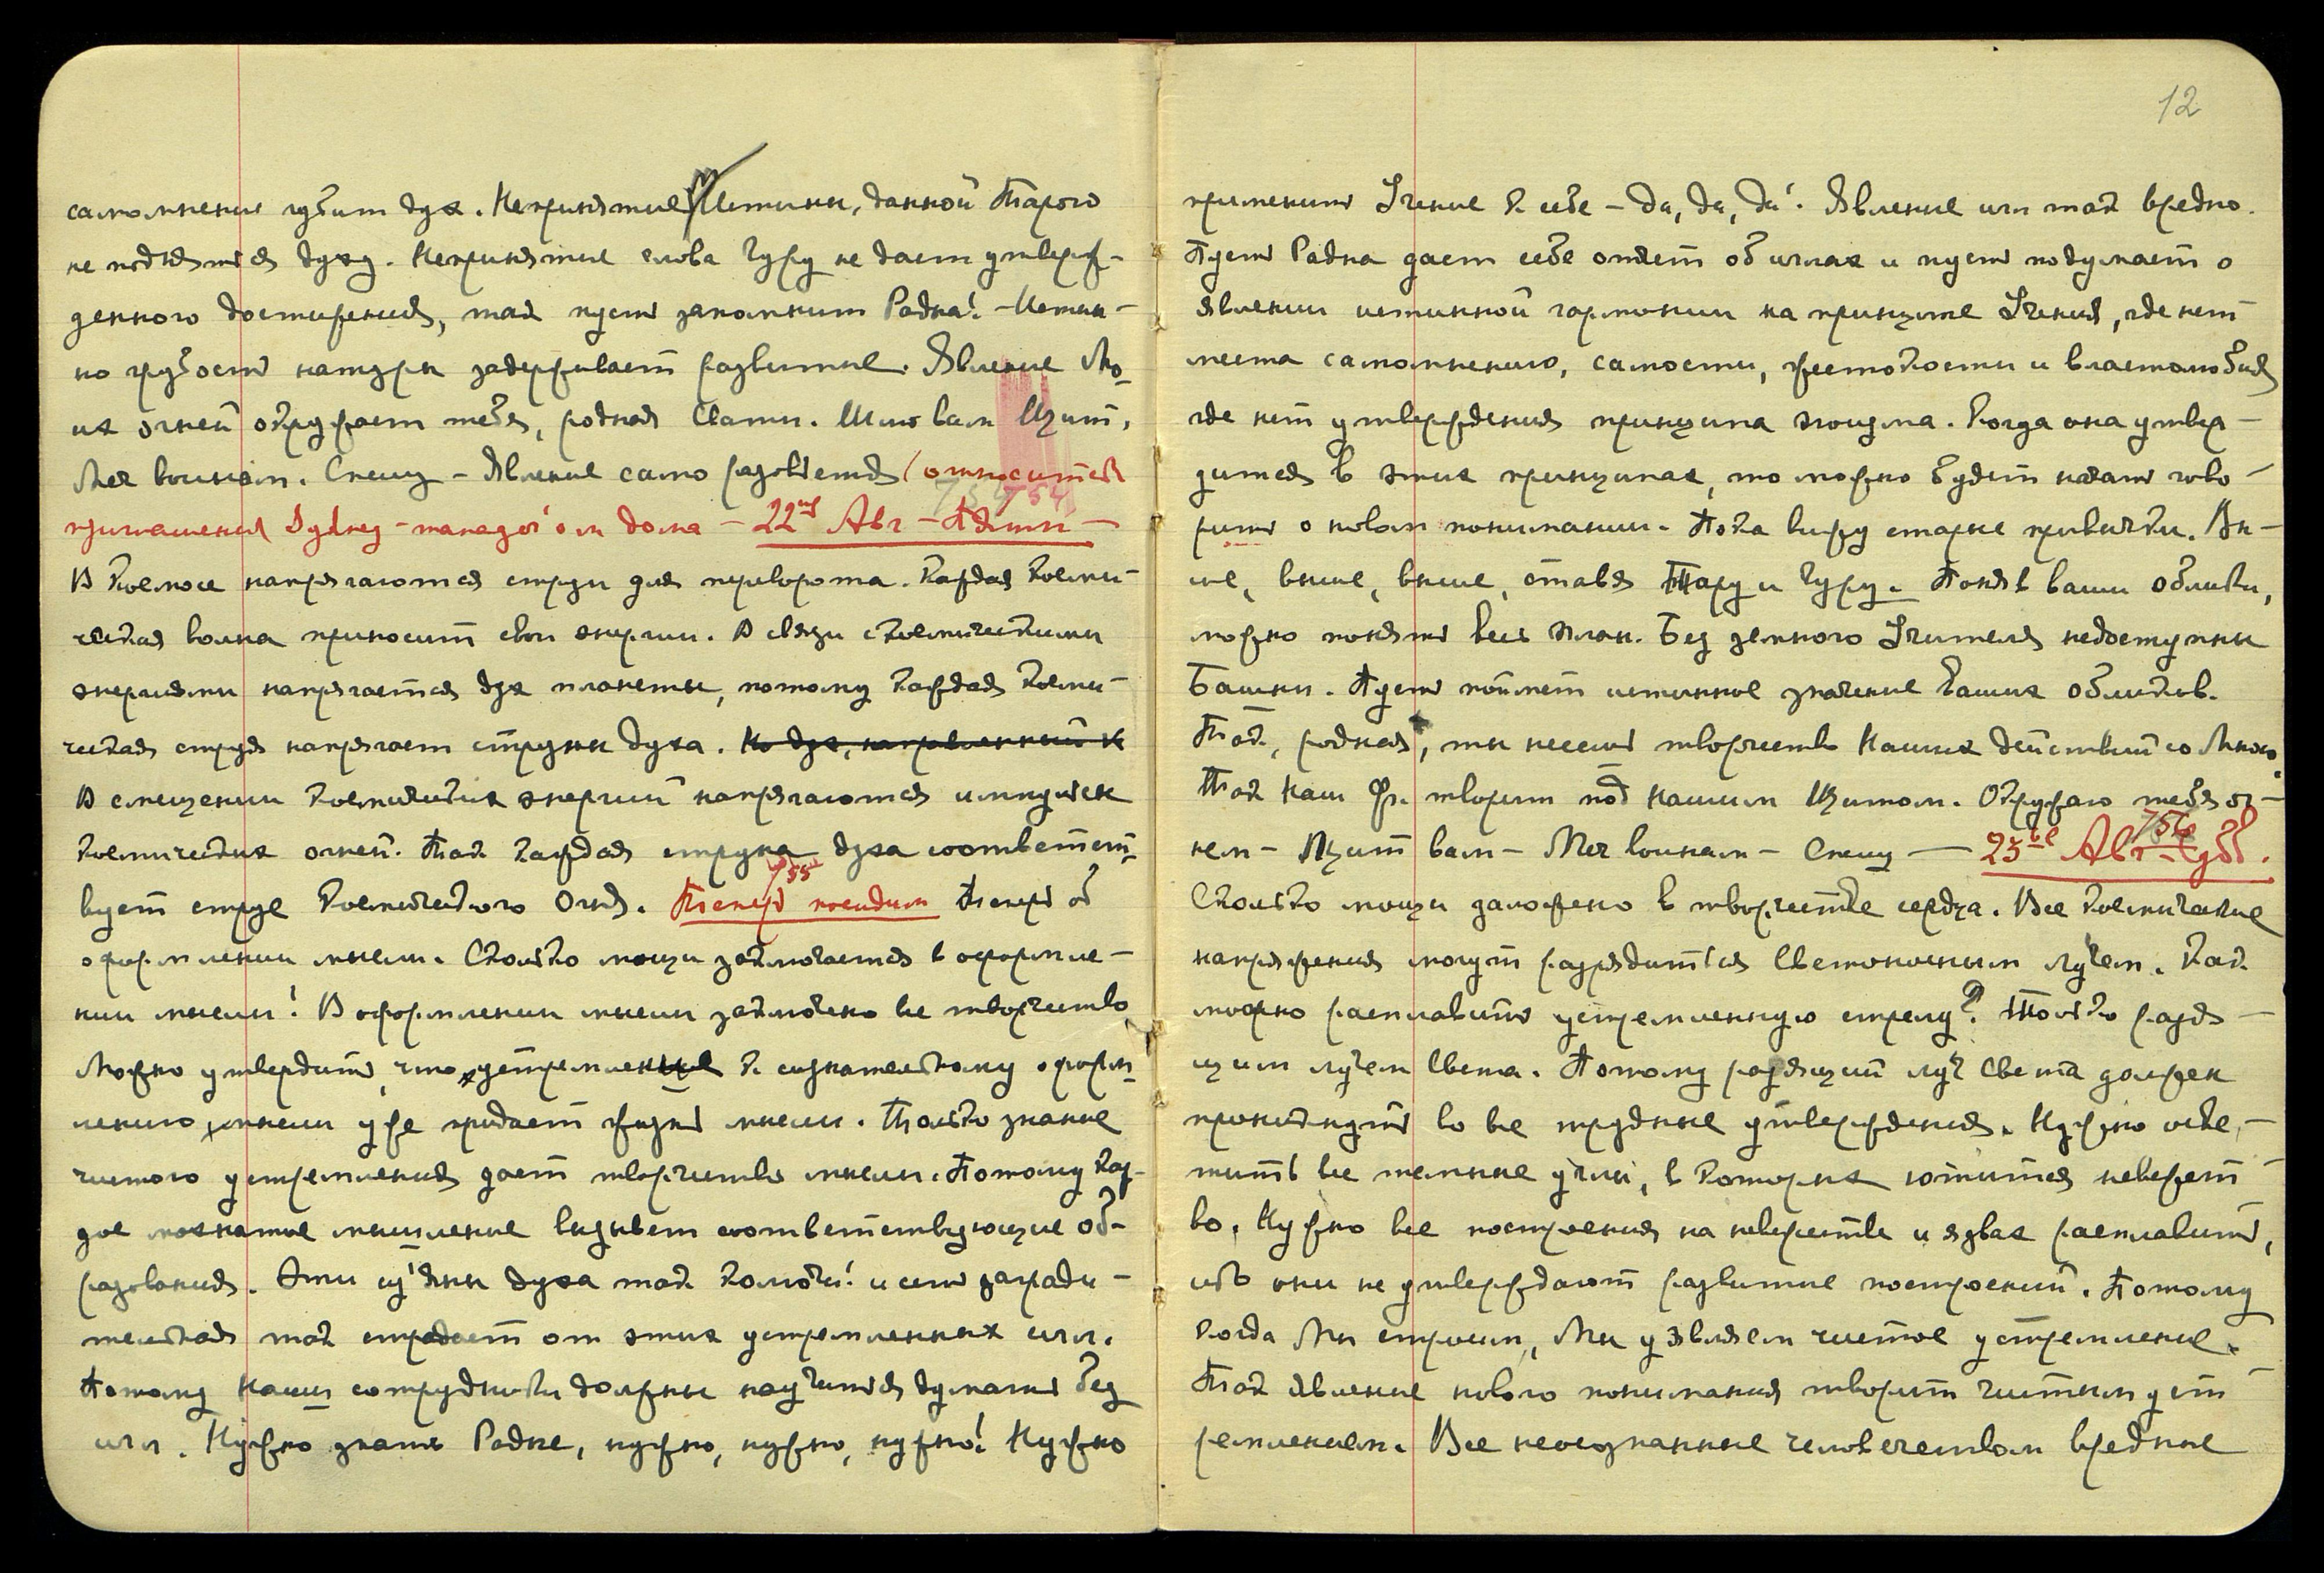 самомнение губит дух. Неприятие Истины, данной Тарою
не поднять ся духу. Неприятие слова Гуру не дает утверж-
денного достижения, так пусть запомнит Радна! - Истин-
но грубость натуры задерживает развитие. Явление Мо-
их огней окружает тебя, родная Свати. Шлю вам Щит,
Меч воинам. Спешу - Явление само разовьется (относится
приглашения Sydney - manager'ом дома - 22ое Авг - Пятн -
В Космосе напрягаются струи для переворота. Каждая косми-
ческая волна приносит свои энергии. В связи с космическими
энергиями напрягается дух планеты, потому каждая косми-
ческая струя напрягает струны духа. Но дух, направленный к
В смещении космических энергий напрягаются импульсы
космических огней. Так каждая струна духа соответст-
754
755
вует струе космического Огня. Теперь посидим Теперь об
оформлении мысли. Сколько мощи заключается в оформле-
нии мысли! В оформлении мысли заключено все творчество
Можно утвердить, что устремление к сознательному оформ-
лению мысли уже придает жизнь мысли. Только знание
чистого устремления дает творчество мысли. Потому каж-
дое мохнатое мышление вызывет соответствующие об-
разования. Эти изъяны духа так колючи! и сеть заради-
тельная так страдает от этих устремленных игл.
Потому Наши сотрудники должны научиться думать без
игл. Нужно знать Радне, нужно, нужно, нужно! Нужно
12
применить Учение к себе - да, да, да! Явление игл так вредно.
Пусть Радна дает себе отчет об иглах и пусть подумает о
явлении истинной гармонии на принципе Учения, где нет
места самомнению, самости, жестокости и властолюбия
где нет утверждения принципа эгоизма. Когда она утвер-
дится в этих принципах, то можно будет начать гово-
рить о новом понимании. Пока вижу старые привычки. Вы-
ше, выше, выше, ставя Тару и Гуру. Поняв ваши облики,
можно понять весь план. Без земного Учителя недоступны
Башни. Пусть поймет истинное значение Ваших обликов.
Так, родная, ты несешь творчество Наших действий со Мною.
Так Наш Ф. творит под Нашим Щитом. Окружаю тебя ог-
нем - Щит вам - Меч воинам - Спешу - 23ье Авг - Субб.
756
Сколько мощи заложено в творчестве сердца. Все космические
напряжения могут разрядиться Светоносным лучем. Как
можно расплавить устремленную стрелу? Только разя-
щим лучем Света. Потому разящий луч Света должен
проникнуть во все трудные утверждения. Нужно осве-
тить все темные углы, в которых ютится невежест-
во. Нужно все построения на невежестве и язвах расплавить,
ибо они не утверждают развитие построений. Потому
когда Мы строим, Мы уявляем чистое устремление.
Так явление нового понимания творит чистым уст-
ремлением. Все неосознанные человечеством вредные